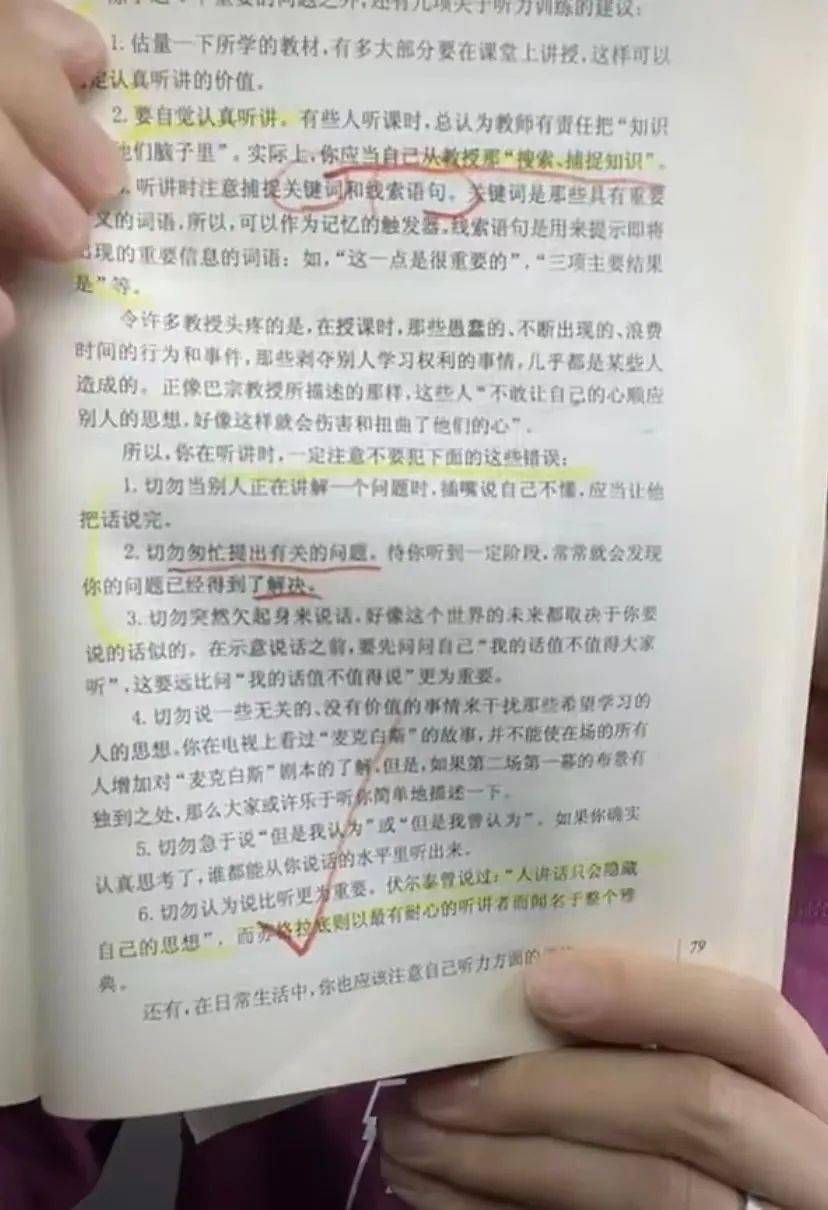 还有几项关于听力训练的建议：
1. 估量一下所学的教材，有多大部分要在课堂上讲授，这样可以
定认真听讲的价值。
2. 要自觉认真听讲。有些人听课时，总认为教师有责任把“知识
他们脑子里”。实际上，你应当自己从教授那“搜索、捕捉知识”。
听讲时注意捕捉关键词和线索语句。关键词是那些具有重要
义的词语，所以，可以作为记忆的触发器，线索语句是用来提示即将
出现的重要信息的词语：如，“这一点是很重要的”，“三项主要结果
是”等。
令许多教授头疼的是，在授课时，那些愚蠢的、不断出现的、浪费
时间的行为和事件，那些剥夺别人学习权利的事情，几乎都是某些人
造成的。正像巴宗教授所描述的那样，这些人“不敢让自己的心顺应
别人的思想，好像这样就会伤害和扭曲了他们的心”。
所以，你在听讲时，一定注意不要犯下面的这些错误：
1. 切勿当别人正在讲解一个问题时，插嘴说自己不懂，应当让他
把话说完。
2. 切勿匆忙提出有关的问题。待你听到一定阶段，常常就会发现
你的问题已经得到了解决。
3. 切勿突然欠起身来说话，好像这个世界的未来都取决于你要
说的话似的。在示意说话之前，要先问问自己“我的话值不值得大家
听”，这要远比问“我的话值不值得说”更为重要。
4. 切勿说一些无关的、没有价值的事情来干扰那些希望学习的
人的思想。你在电视上看过“麦克白斯”的故事，并不能使在场的所有
人增加对“麦克白斯”剧本的了解，但是，如果第二场第一幕的布景有
独到之处，那么大家或许乐于听你简单地描述一下。
5. 切勿急于说“但是我认为”或“但是我曾认为”。如果你确实
认真思考了，谁都能从你说话的水平里听出来。
6. 切勿认为说比听更为重要。伏尔泰曾说过：“人讲话只会隐藏
自己的思想”，而苏格拉底则以最有耐心的听讲者而闻名于整个雅
典。
还有，在日常生活中，你也应该注意自己听力方面的
79